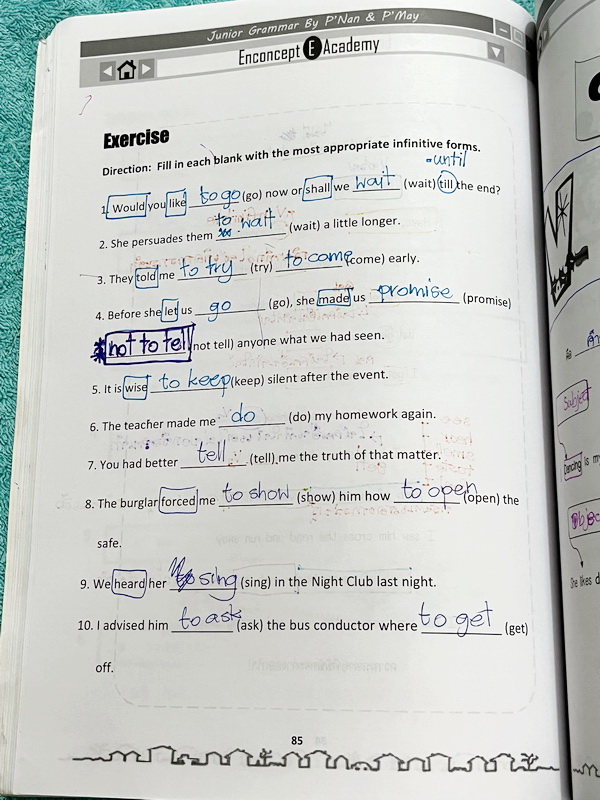 Junior Grammar By P'Nan & P'May
Enconcept E Academy
Exercise
Direction: Fill in each blank with the most appropriate infinitive forms.
- until
1. Would you like to go (go) now or shall we wait (wait) till the end?
2. She persuades them to wait (wait) a little longer.
3. They told me to try (try) to come (come) early.
4. Before she let us go (go), she made us promise (promise)
not to tell (not tell) anyone what we had seen.
5. It is wise to keep (keep) silent after the event.
6. The teacher made me do (do) my homework again.
7. You had better tell (tell) me the truth of that matter.
8. The burglar forced me to show (show) him how to open (open) the
safe.
9. We heard her sing (sing) in the Night Club last night.
10. I advised him to ask (ask) the bus conductor where to get (get)
off.
85
Subject
Dancing is my
Object
She likes d